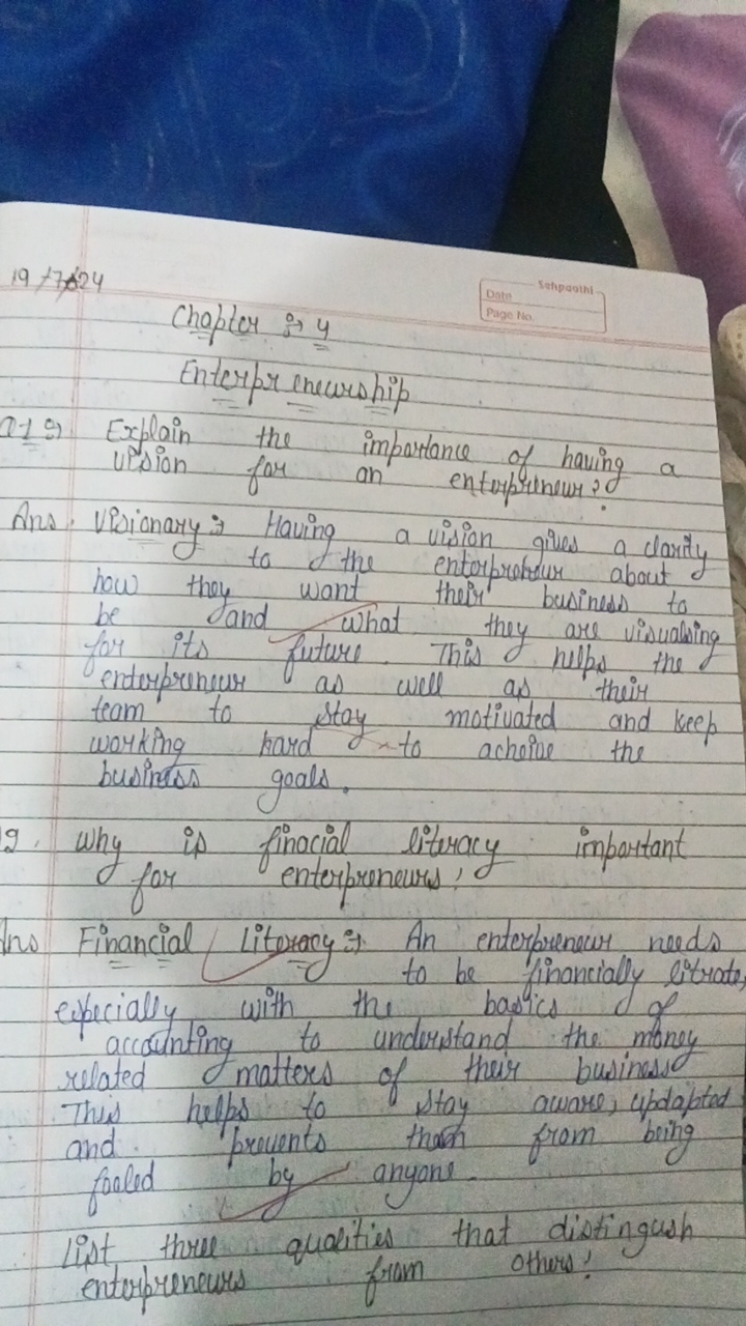 19/7/24
Sehpaathi
Date
Page No.
Chapter :→ 4
Enterpreneurship
Q1 →) Explain the importance of having a
vision for an enterpreneur?
Ans. Visionary :→ Having a vision gives a clarity
to the enterpreneur about
how they want their business to
be and what they are visualsing
for its future. This helps the
enterpreneur as well as their
team to stay motivated and keep
working hard to acheive the
business goals.
why is finocial literacy important
for enterpreneurs?
Ans Financial Literacy :→ An enterpreneur needs
to be financially litrate,
especially with the bastics of
accounting to understand the money
related matters of their business
This helps to stay aware, updapted
and prevents them from being
fooled by anyone.
List three qualities that distingush
enterpreneurs from others?